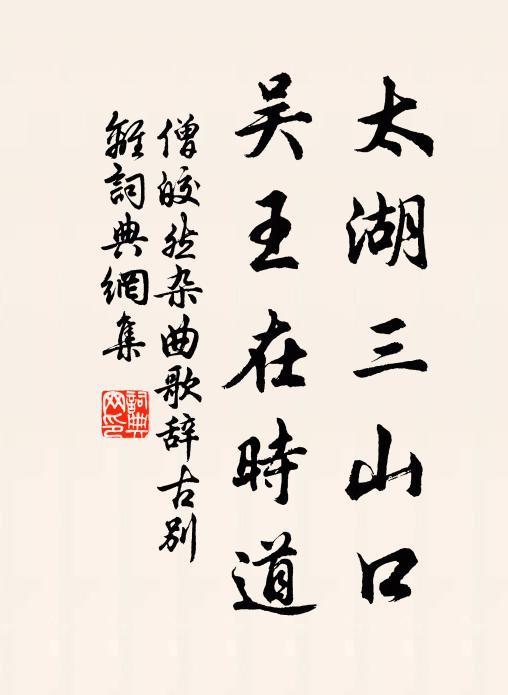 太湖三山口
吴王在時道
僧皎然杂曲歌辞古别
離詞典網集
詞典
网印